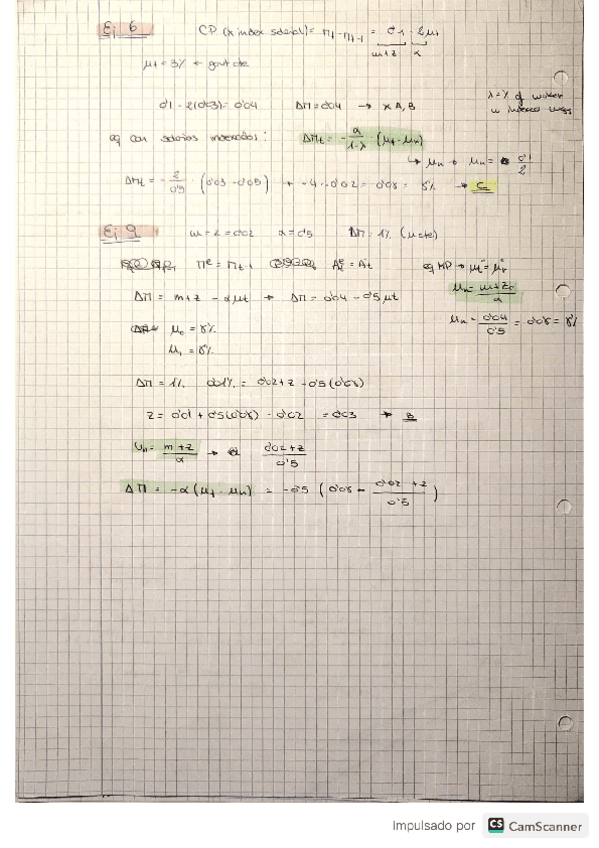 Ej 6 CP (x index salarial) = Π_t - Π_t-1 = 0'1 - 2μ_t
m+z α
μ_t = 3%
0'1 - 2(0'03) = 0'04 ΔΠ = 0'04 → x A, B
λ = % of
eq con salarios indexados: ΔΠ_t = - α/(1-λ) · (μ_t - μ_n)
↳ μ_n → μ_n = 0'1/2
ΔΠ_t = - 2/0'5 · (0'03 - 0'05) → -4 · -0'02 = 0'08 = 8% → C
Ej 9 m = z = 0'02 α = 0'5 ΔΠ = 1% (μ = cte)
Π^e = Π_t-1 A^e_t = A_t eq MP → μ_t = μ_n
ΔΠ = m+z - αμ_t → ΔΠ = 0'04 - 0'5μ_t μ_n = (m+z)/α
μ_0 = 8% μ_n = 0'04/0'5 = 0'08 = 8%
μ_1 = 8%
ΔΠ = 1% 0'01 = 0'02 + z - 0'5(0'08)
z = 0'01 + 0'5(0'08) - 0'02 = 0'03 → B
U_n = (m+z)/α → (0'02+z)/0'5
ΔΠ = -α(μ_t - μ_n) = -0'5 (0'08 - (0'02+z)/0'5)
Impulsado por CS CamScanner